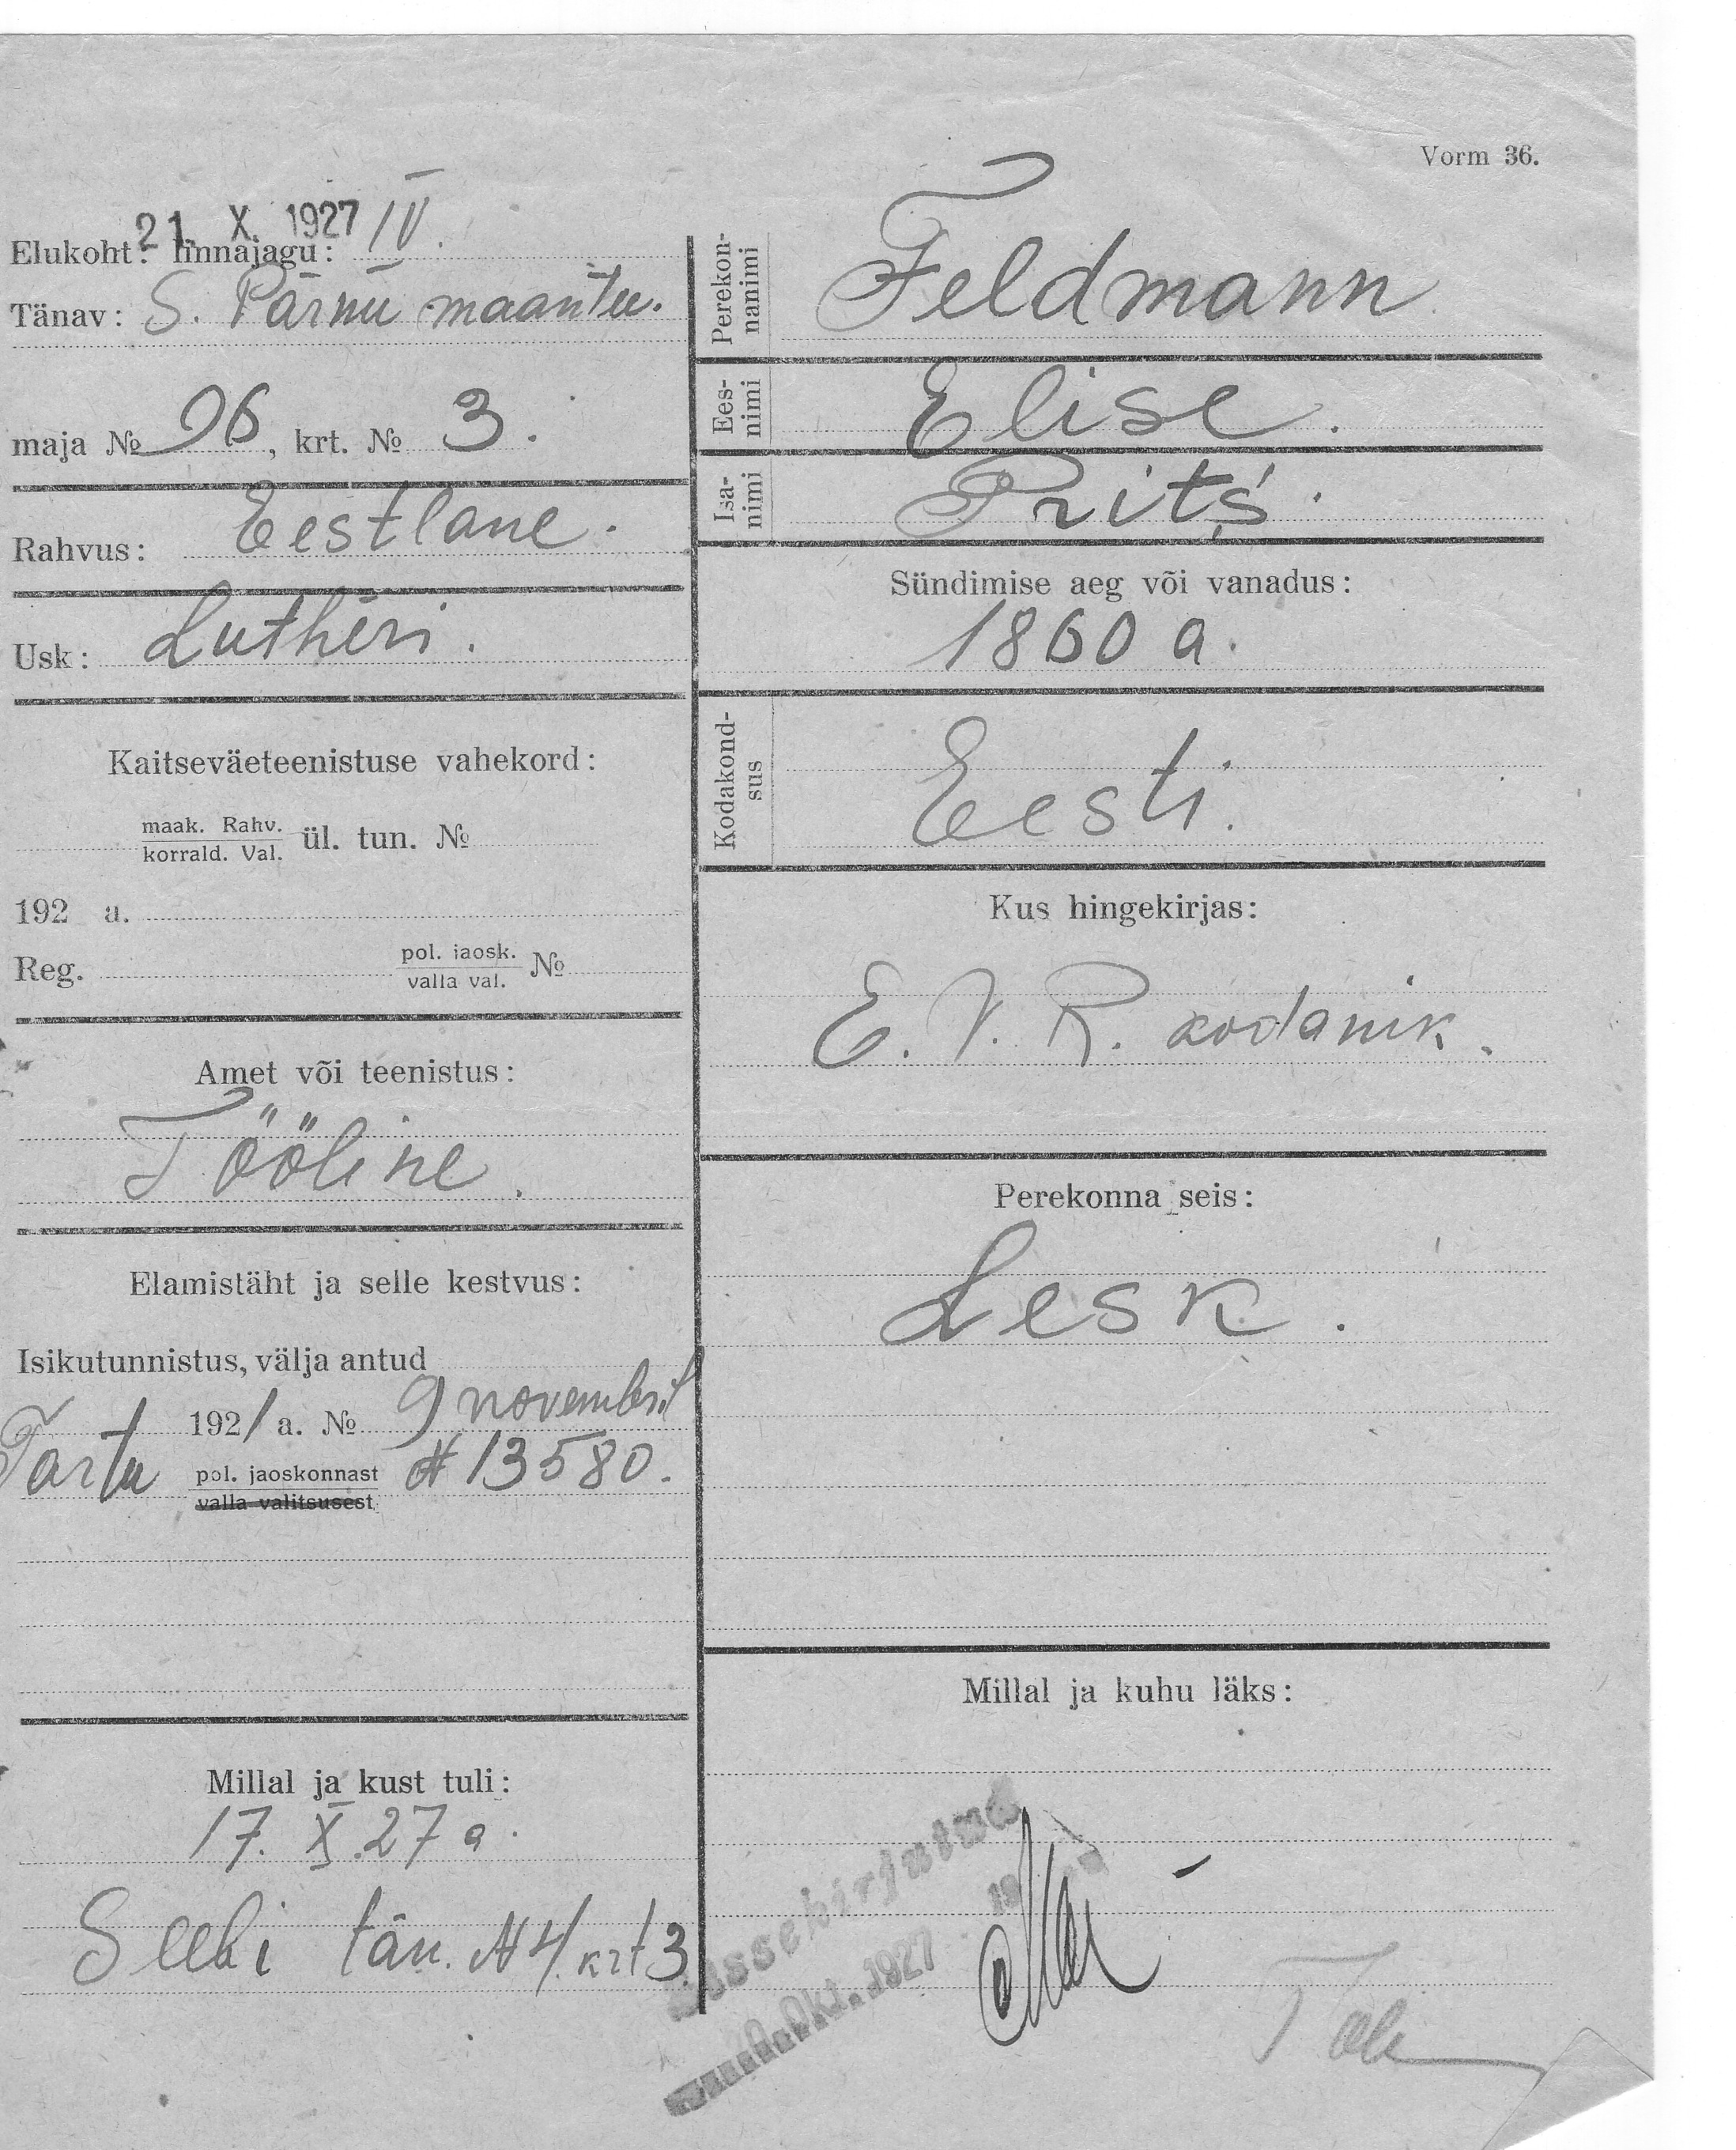 Vorm 36.
21. X. 1927
Elukoht: linnajagu: IV.
Tänav: S. Pärnu maantee.
maja № 96, krt. № 3.
Rahvus: Eestlane.
Usk: Lutheri.
Kaitseväeteenistuse vahekord:
maak. Rahv.
korrald. Val. ül. tun. №
192 a.
Reg. pol. jaosk.
valla val. №
Amet või teenistus:
Tööline.
Elamistäht ja selle kestvus:
Isikutunnistus, välja antud
1921 a. № 9 novembril
Tartu pol. jaoskonnast № 13580.
valla valitsusest
Millal ja kust tuli:
17. X. 27 a.
Seebi tän. № 4. krt 3.
Perekon-
nanimi Feldmann
Ees-
nimi Elise.
Isa-
nimi
Sündimise aeg või vanadus:
1860 a.
Kodakond-
sus Eesti.
Kus hingekirjas:
E. V. R. kodanik.
Perekonna seis:
Lesk.
Millal ja kuhu läks:
Sissekirjutud
Okt. 1927